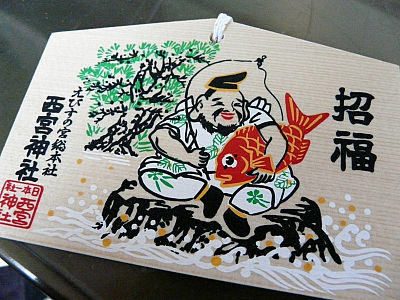 招福
えびす宮総本社
西宮神社
日本一社
西宮
神社